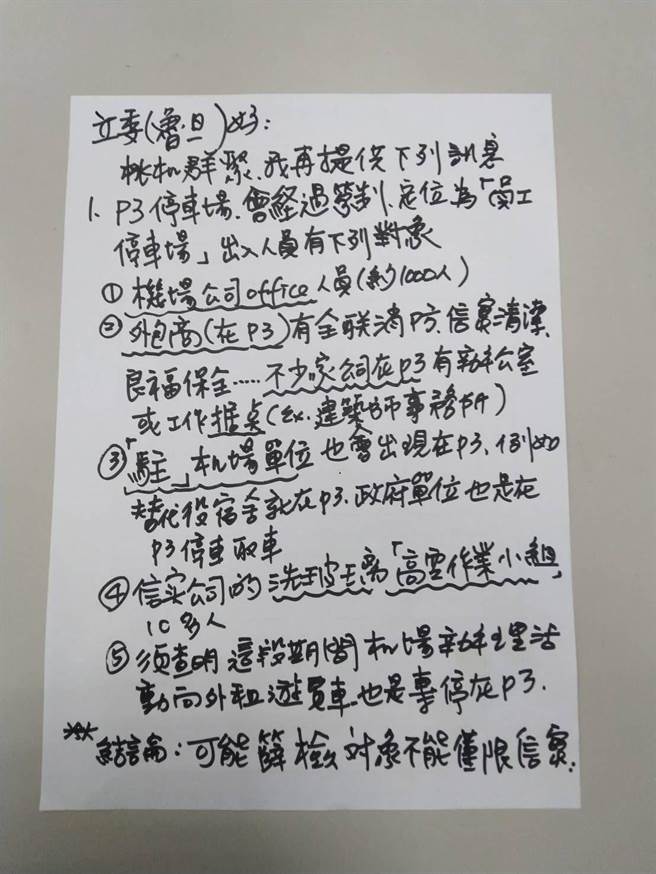 立委(魯.旦)好:
桃机群聚.我再提供下列訊息
1. P3停車場.會経過管制.定位為「員工
停車場」出入人員有下列對象
①機場公司office人員(約1000人)
②外包商(在P3)有全联消防.信实清潔
良福保全.....不少家公司在P3有辦公室
或工作据点(ex.建築師事務所)
③「駐」机場單位也會出現在P3.例如
替代役宿舍就在P3.政府單位也是在
P3停車取車
④信实公司的洗玻璃「高空作業小組」
10多人
⑤須查明這段期間机場辦理活
動向外租遊覽車.也是專停在P3.
*** 結論:可能篩檢对象不能僅限信实.